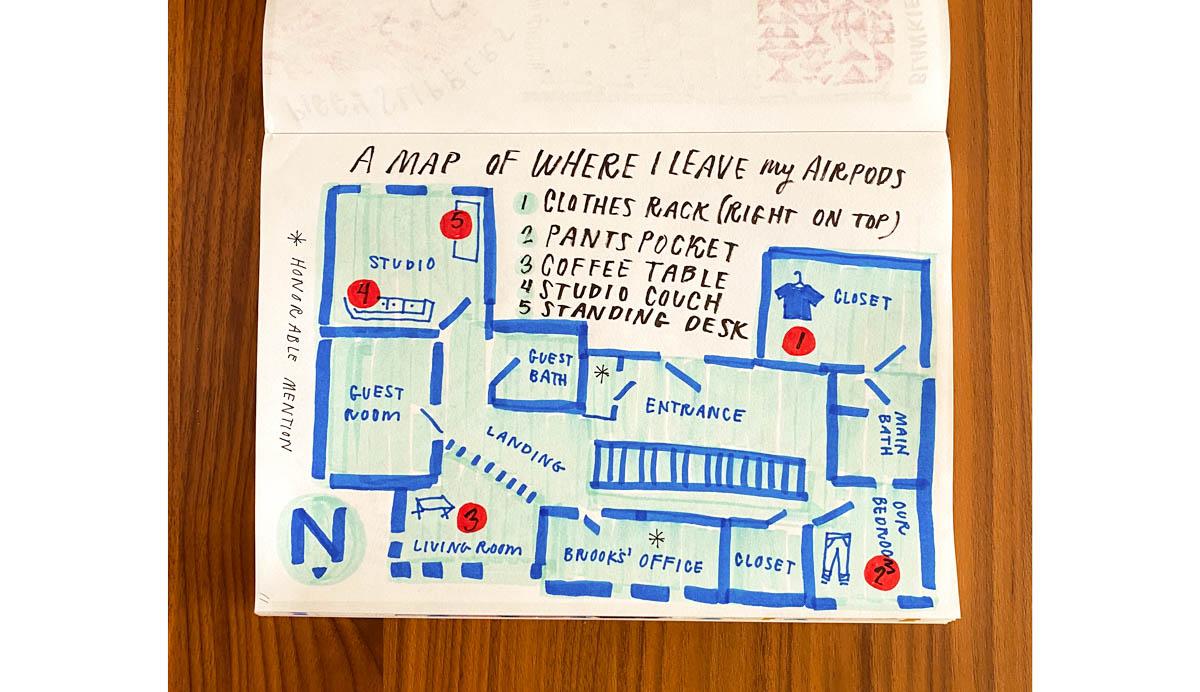 A MAP OF WHERE I LEAVE my AIRPODS
1 CLOTHES RACK (RIGHT ON TOP)
2 PANTS POCKET
3 COFFEE TABLE
4 STUDIO COUCH
5 STANDING DESK
* HONORABLE MENTION
5
STUDIO
4
CLOSET
1
GUEST
BATH
*
GUEST
ROOM
ENTRANCE
MAIN
BATH
LANDING
OUR
BEDROOM
3
LIVING ROOM
*
BROOKS' OFFICE
CLOSET
2
N
11
PIGGY SLIPPERS
BLANKIE